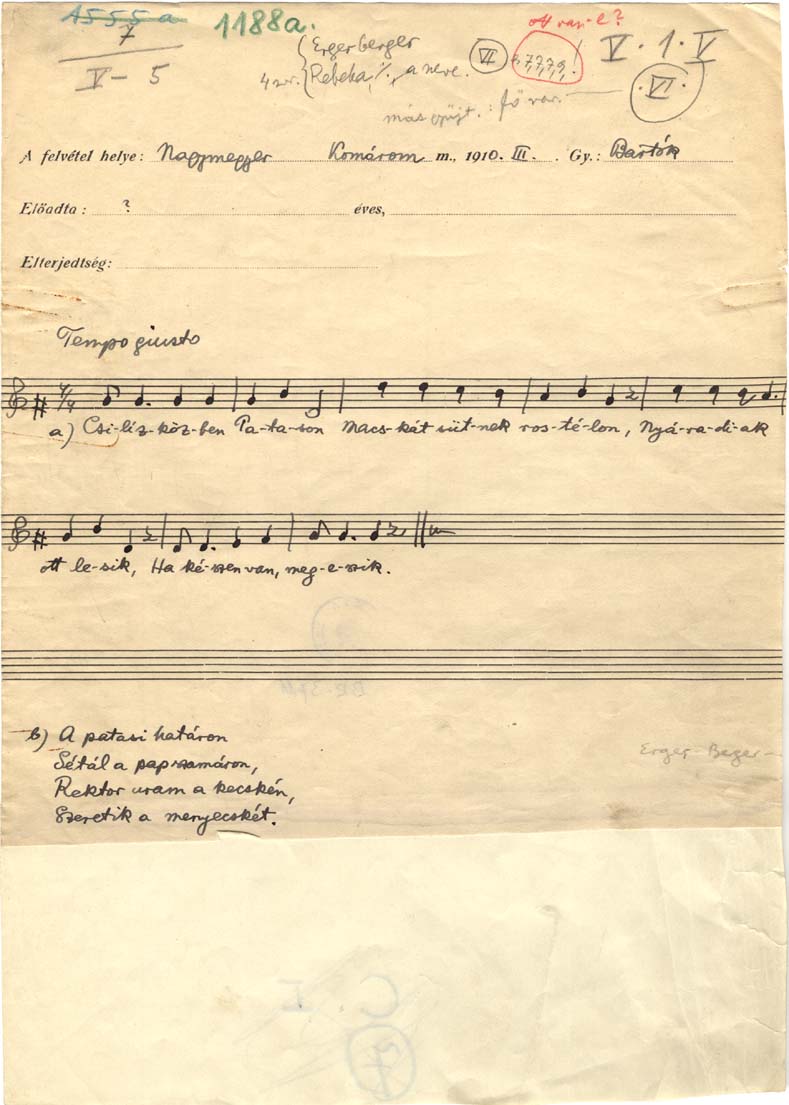 A 555 a
7
V - 5
1188a.
ott van-e?
(Ergerberger
4 szr. {Rebeka %, a neve.
VI
7,7,7,9,
V. 1. V
.VI.
más gyűjt.: fő var.
A felvétel helye: Nagymegyer Komárom m., 1910. III. Gy.: Bartók
Előadta: ? éves,
Elterjedtség:
Tempo giusto
4/4
a) Csi-liz-köz-ben Pa-ta-son Macs-kát süt-nek ros-té-lon, Nyá-ra-di-ak
ott le-sik, Ha ké-szen van, meg-e-szik.
b) A patasi határon
Sétál a pap szamáron,
Rektor uram a kecskén,
Szeretik a menyecskét.
Erger-Berger-
C. I